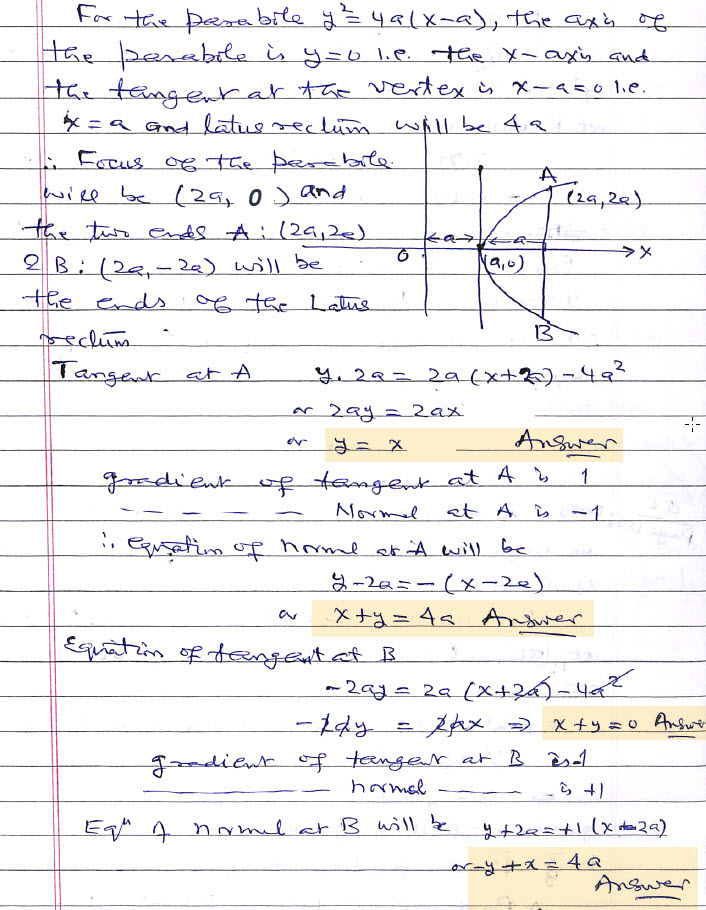 For the parabola y² = 4a(x-a), the axis of
the parabola is y=0 i.e. the x-axis and
the tangent at the vertex is x-a=0 i.e.
x = a and latus rectum will be 4a
∴ Focus of the parabola
will be (2a, 0) and
the two ends A: (2a,2a)
& B: (2a,-2a) will be
the ends of the Latus
rectum
A
(2a,2a)
a
a
O
(a,0)
X
B
Tangent at A y. 2a = 2a (x+2a) - 4a²
or 2ay = 2ax
or y = x Answer
gradient of tangent at A is 1
— — — — — Normal at A is -1
∴ equation of normal at A will be
y-2a = - (x-2a)
or x+y = 4a Answer
Equation of tangent at B
-2ay = 2a (x+2a) - 4a²
-2ay = 2ax ⇒ x+y=0 Answe
gradient of tangent at B is -1
normal is +1
Eqⁿ of normal at B will be y+2a=+1(x-2a)
or -y+x = 4a
Answer